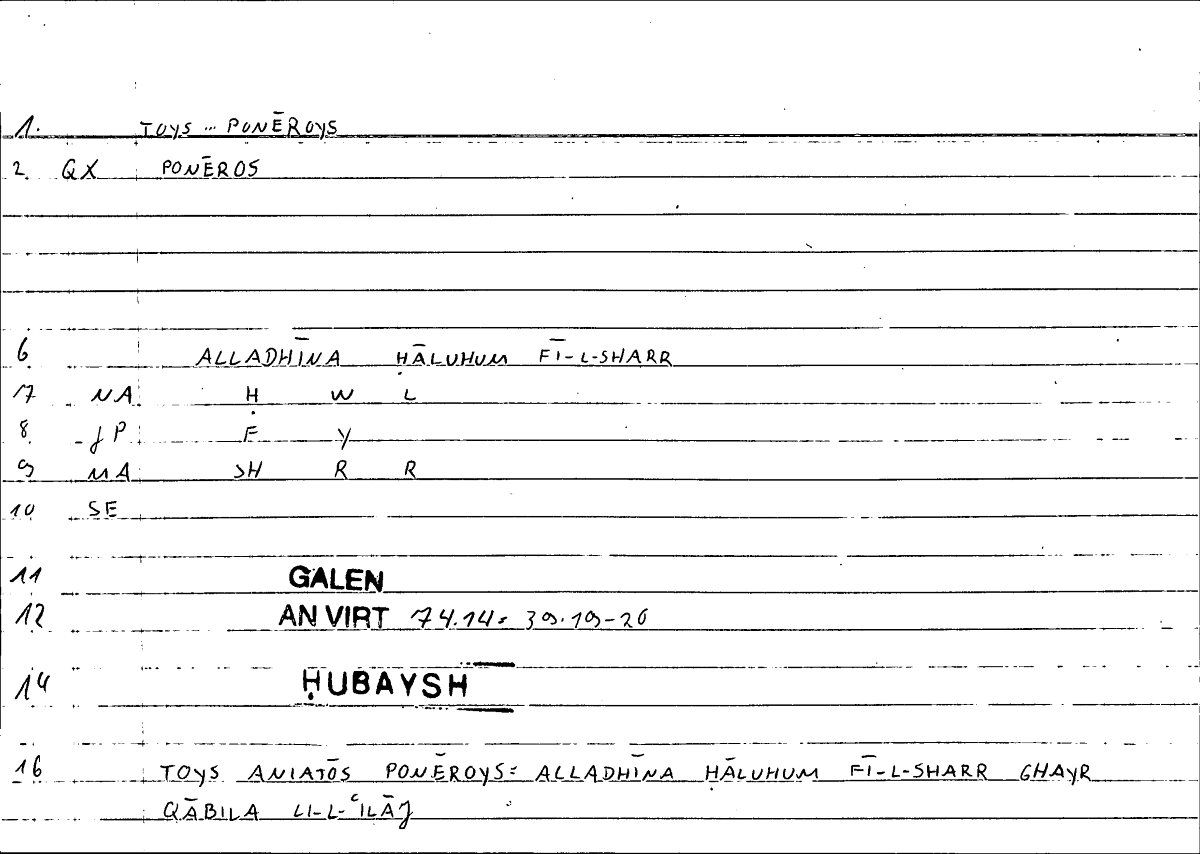 1. TOYS ... PONĒROYS
2. QX PONĒROS
6 ALLADHĪNA ḤĀLUHUM FĪ-L-SHARR
7 NA Ḥ W L
8. JP F Y
9 MA SH R R
10 SE
11 GALEN
12 AN VIRT 74.14= 39.19-20
14 ḤUBAYSH
16 TOYS ANIATŌS PONĒROYS= ALLADHĪNA ḤĀLUHUM FĪ-L-SHARR GHAYR
QĀBILA LI-L-ʿILĀJ